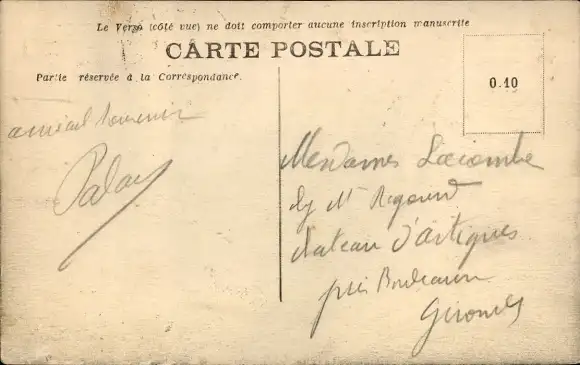 Le Verso (côté vue) ne doit comporter aucune inscription manuscrite
CARTE POSTALE
Partie réservée à la Correspondance.
0.10
amical souvenir
Palay
Mesdames Lacombe
chez Mr
chateau d'artigues
près Bordeaux
Gironde